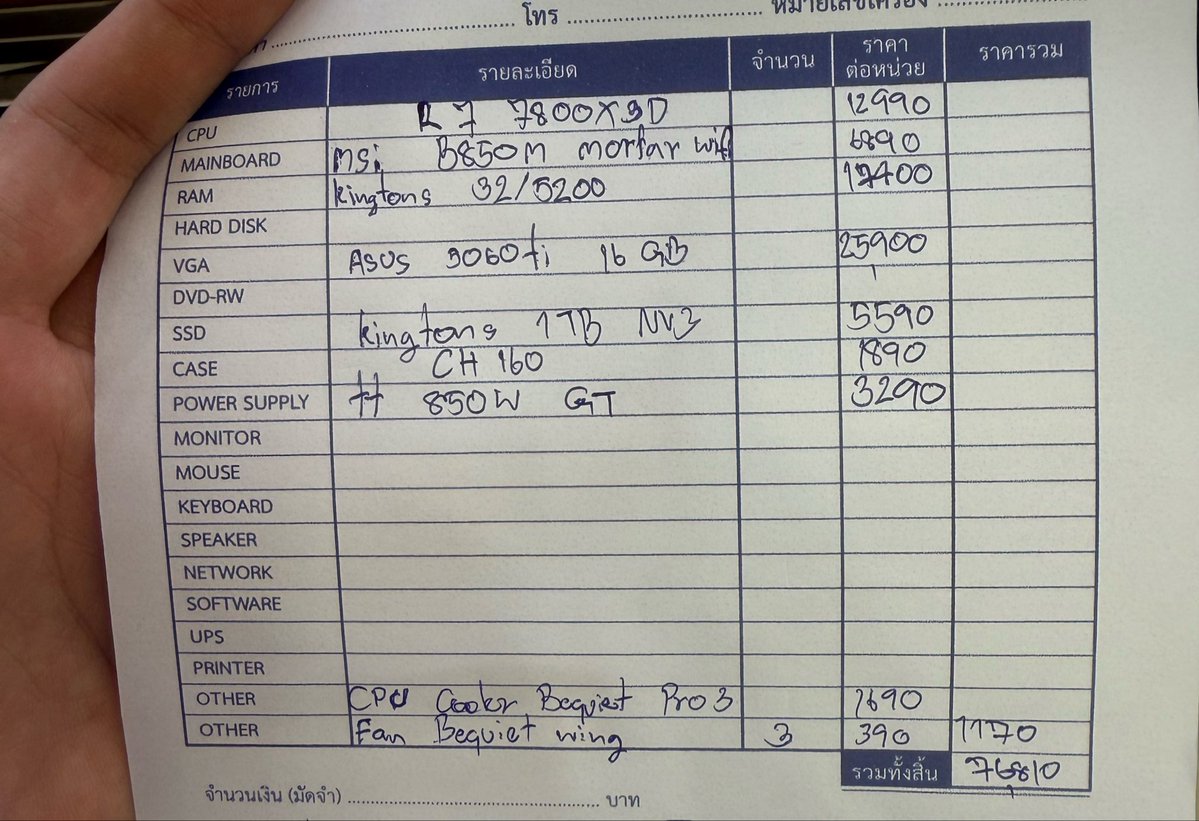 โทร ........ หมายเลขเครื่อง ........
รายการ รายละเอียด จำนวน ราคาต่อหน่วย ราคารวม
CPU R 7 7800X3D 12990
MAINBOARD msi B850M mortar wifi 6890
RAM kingtons 32/5200 17400
HARD DISK
VGA Asus 5060ti 16 GB 25900
DVD-RW
SSD kingtons 1TB NV3 5590
CASE CH 160 1890
POWER SUPPLY tt 850W GT 3290
MONITOR
MOUSE
KEYBOARD
SPEAKER
NETWORK
SOFTWARE
UPS
PRINTER
OTHER CPU Cooler Bequiet Pro 3 1690
OTHER Fan Bequiet wing 3 390 1170
รวมทั้งสิ้น 76,810
จำนวนเงิน (มัดจำ) ........ บาท